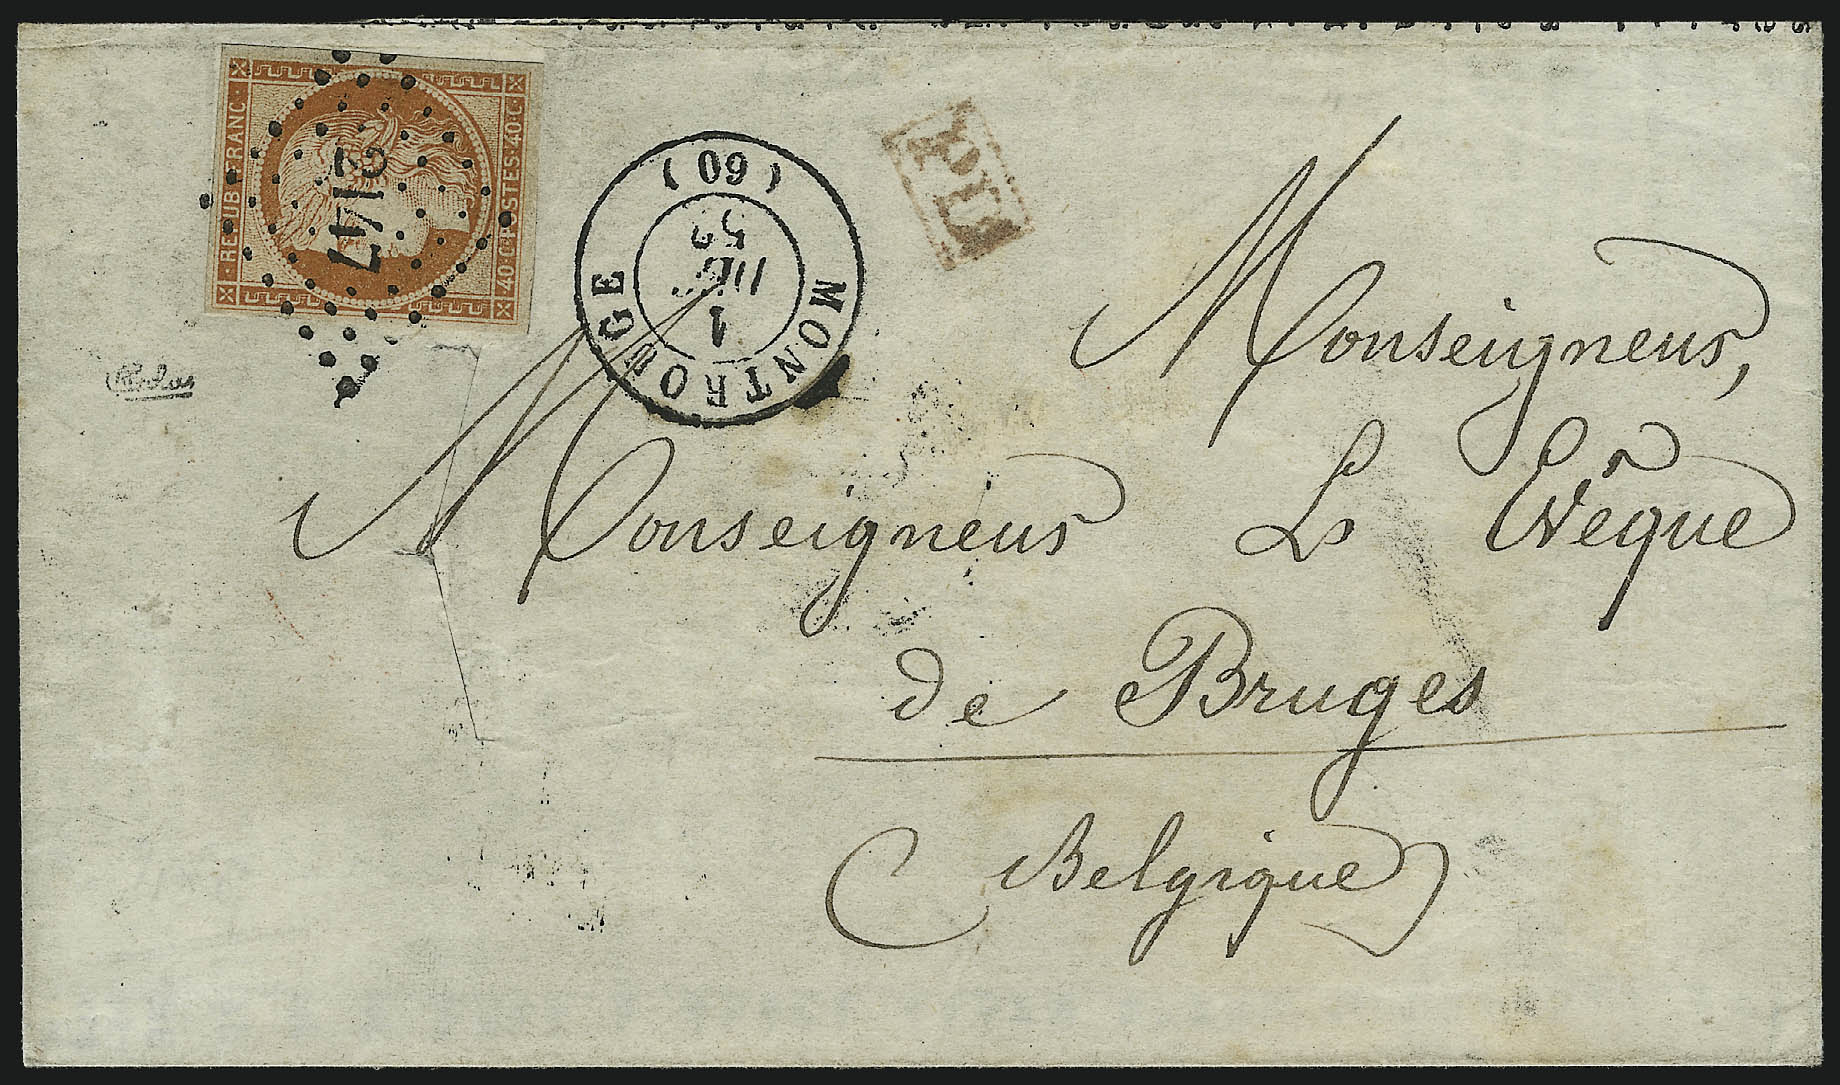 REPUB·FRANC·
40·C·POSTES·40·C
2147
MONTROUGE
(60)
1
52
P.D
Monseigneur,
Monseigneur L'Evêque
de Bruges
Belgique